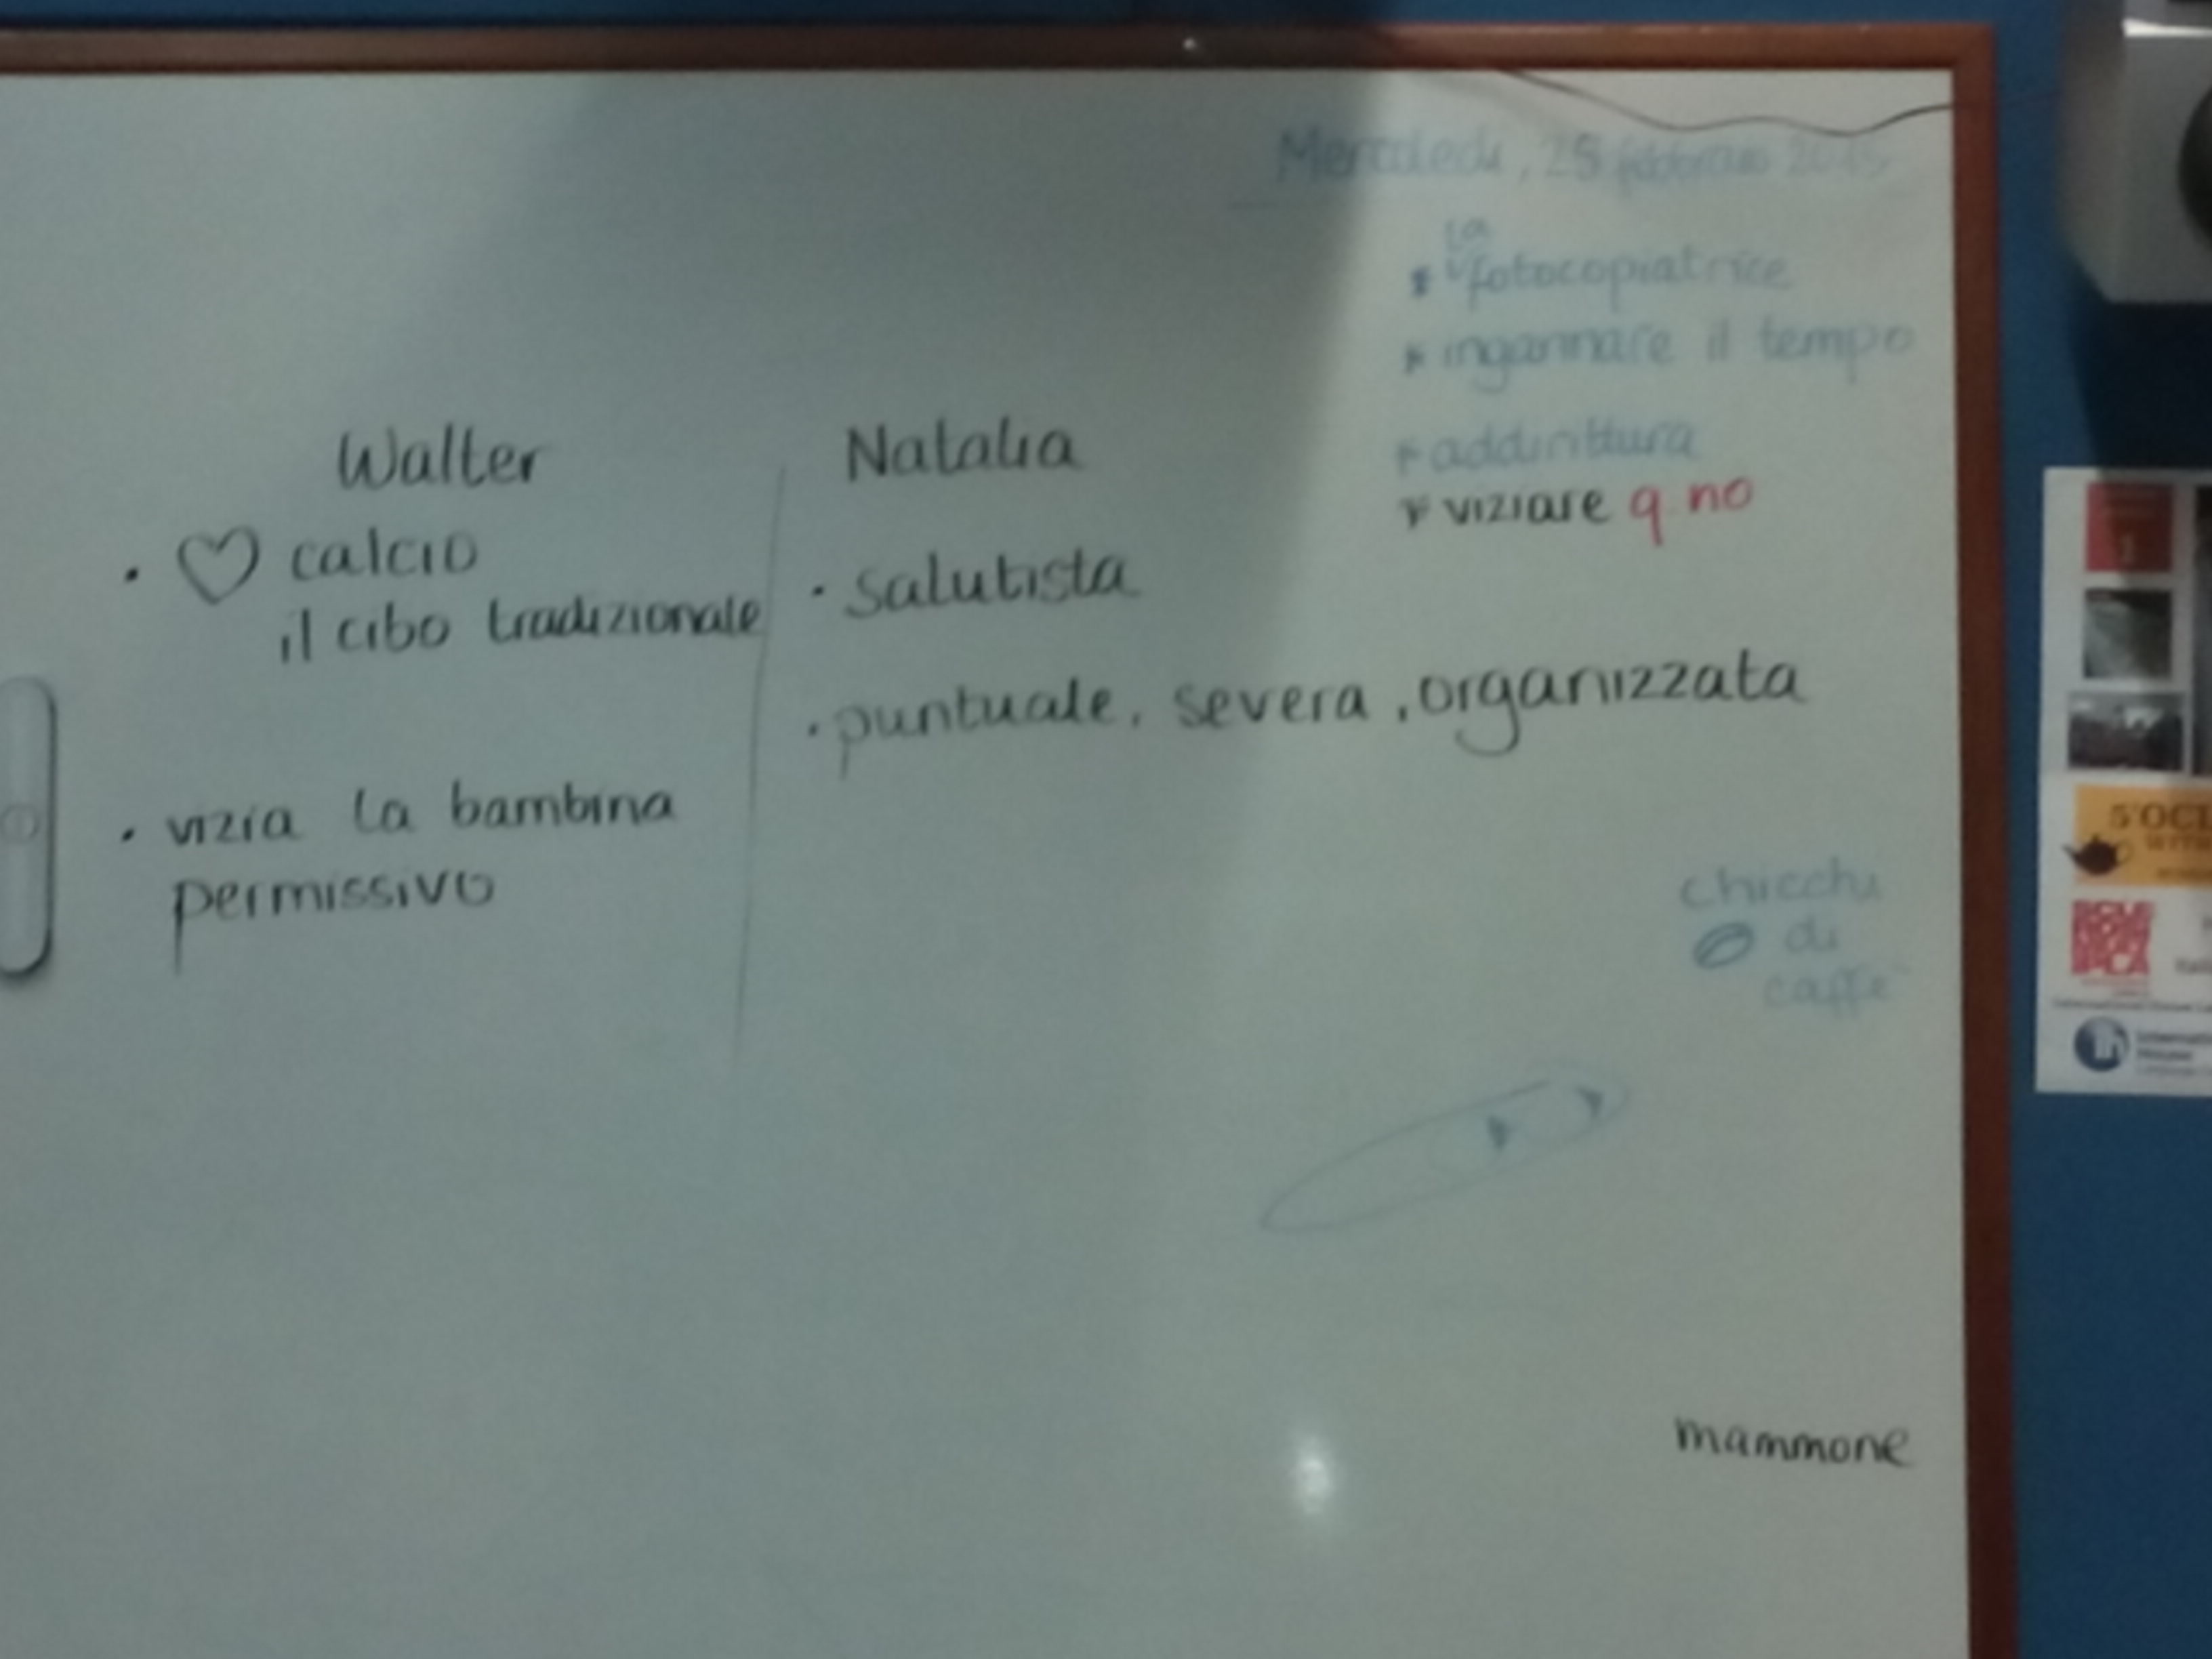 Mercoledì, 25 febbraio 2015
la
* fotocopiatrice
* ingannare il tempo
* addirittura
* viziare q.no
Walter
Natalia
• ♡ calcio
il cibo tradizionale
• salutista
• puntuale, severa, organizzata
• vizia la bambina
permissivo
chicchi
di
caffè
mammone
5'OCL